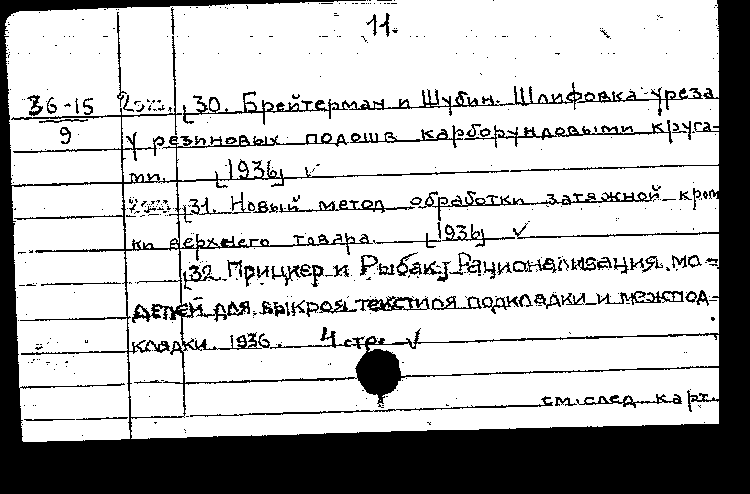 11.
36-15 2экз. [30. Брейтерман и Шубин. Шлифовка уреза
9 у резиновых подошв карборундовыми круга-
ми. [1936] ✓
2экз. [31. Новый метод обработки затяжной кром
ки верхнего товара. [1936] ✓
[32. Прицкер и Рыбак. Рационализация мо-
делей для выкроя текстиля подкладки и межпод-
кладки. 1936. 4 стр. ✓
см. след. карт.